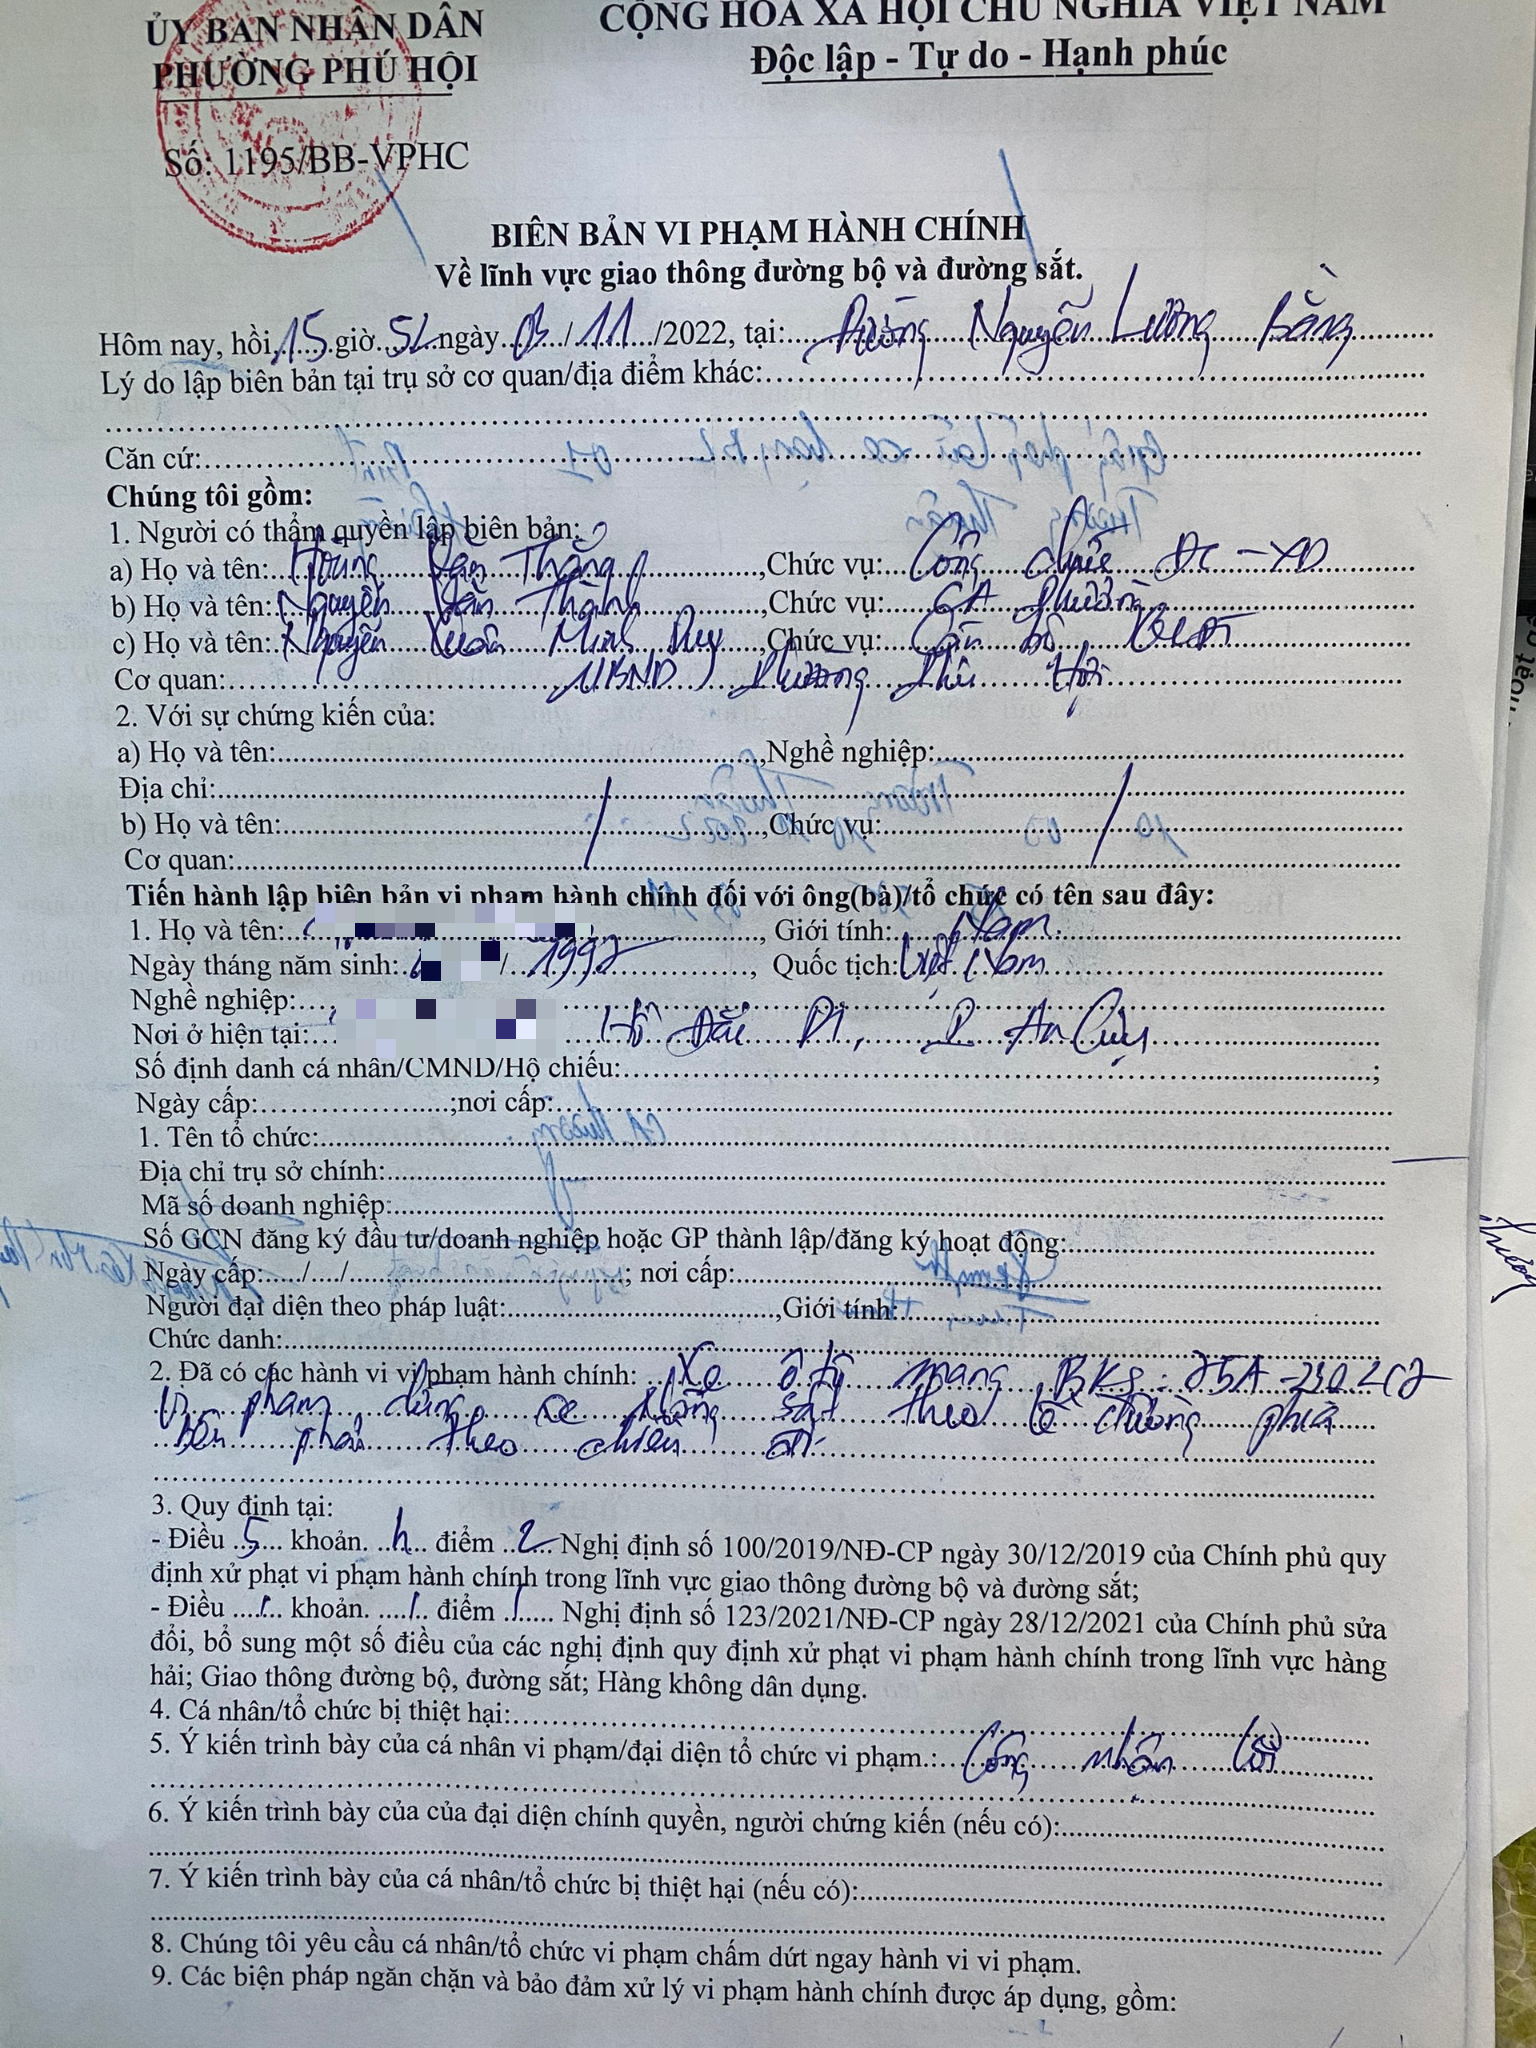 ỦY BAN NHÂN DÂN
PHƯỜNG PHÚ HỘI
CỘNG HÒA XÃ HỘI CHỦ NGHĨA VIỆT NAM
Độc lập - Tự do - Hạnh phúc
Số: 1195/BB-VPHC
BIÊN BẢN VI PHẠM HÀNH CHÍNH
Về lĩnh vực giao thông đường bộ và đường sắt.
Hôm nay, hồi 15 giờ 52 ngày 03/11/2022, tại: Đường Nguyễn Lương Bằng
Lý do lập biên bản tại trụ sở cơ quan/địa điểm khác:
Căn cứ:
Chúng tôi gồm:
1. Người có thẩm quyền lập biên bản:
a) Họ và tên: Hoàng Văn Thắng, Chức vụ: Công chức ĐC-XD
b) Họ và tên: Nguyễn Văn Thành, Chức vụ: CA Phường
c) Họ và tên: Nguyễn Xuân Minh Duy, Chức vụ: Cán bộ
Cơ quan: UBND Phường Phú Hội
2. Với sự chứng kiến của:
a) Họ và tên:, Nghề nghiệp:
Địa chỉ:
b) Họ và tên:, Chức vụ:
Cơ quan:
Tiến hành lập biên bản vi phạm hành chính đối với ông(bà)/tổ chức có tên sau đây:
1. Họ và tên:, Giới tính: Nam
Ngày tháng năm sinh: / 1997, Quốc tịch: Việt Nam
Nghề nghiệp:
Nơi ở hiện tại: Hồ Đắc Di, P. An Cựu
Số định danh cá nhân/CMND/Hộ chiếu:;
Ngày cấp:;nơi cấp:
1. Tên tổ chức:
Địa chỉ trụ sở chính:
Mã số doanh nghiệp:
Số GCN đăng ký đầu tư/doanh nghiệp hoặc GP thành lập/đăng ký hoạt động:
Ngày cấp:..../..../; nơi cấp:
Người đại diện theo pháp luật:,Giới tính:
Chức danh:
2. Đã có các hành vi vi phạm hành chính: Xe ô tô mang BKS: 75A-
Vi phạm dừng xe không sát theo lề đường phía
bên phải theo chiều đi
3. Quy định tại:
- Điều 5 khoản h điểm 2 Nghị định số 100/2019/NĐ-CP ngày 30/12/2019 của Chính phủ quy
định xử phạt vi phạm hành chính trong lĩnh vực giao thông đường bộ và đường sắt;
- Điều / khoản / điểm / Nghị định số 123/2021/NĐ-CP ngày 28/12/2021 của Chính phủ sửa
đổi, bổ sung một số điều của các nghị định quy định xử phạt vi phạm hành chính trong lĩnh vực hàng
hải; Giao thông đường bộ, đường sắt; Hàng không dân dụng.
4. Cá nhân/tổ chức bị thiệt hại:
5. Ý kiến trình bày của cá nhân vi phạm/đại diện tổ chức vi phạm.: Công nhận lỗi
6. Ý kiến trình bày của của đại diện chính quyền, người chứng kiến (nếu có):
7. Ý kiến trình bày của cá nhân/tổ chức bị thiệt hại (nếu có):
8. Chúng tôi yêu cầu cá nhân/tổ chức vi phạm chấm dứt ngay hành vi vi phạm.
9. Các biện pháp ngăn chặn và bảo đảm xử lý vi phạm hành chính được áp dụng, gồm: